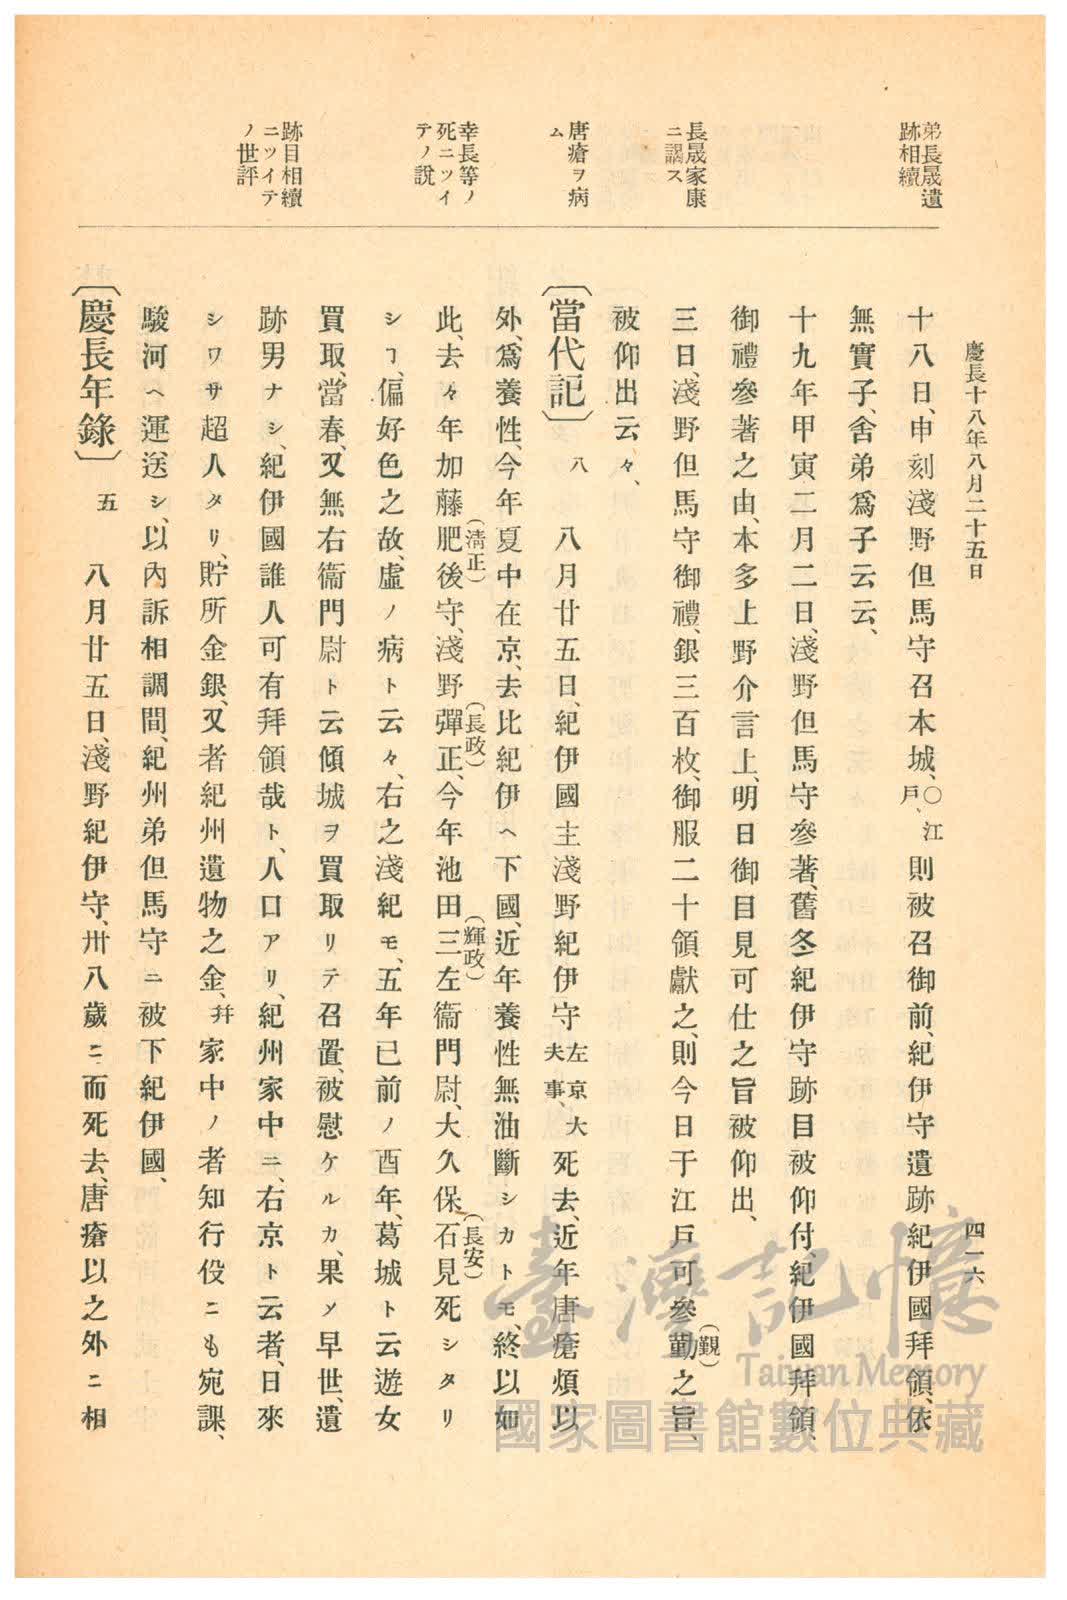 慶長十八年八月二十五日
四一六
弟長晟遺
跡相續
長晟家康
ニ謁ス
唐瘡ヲ病
ム
幸長等ノ
死ニツイ
テノ說
跡目相續
ニツイテ
ノ世評
十八日、申刻淺野但馬守召本城、〇江戶、則被召御前、紀伊守遺跡紀伊國拜領、依
無實子、舍弟爲子云云、
十九年甲寅二月二日、淺野但馬守參著、舊冬紀伊守跡目被仰付、紀伊國拜領、
御禮參著之由、本多上野介言上、明日御目見可仕之旨被仰出、
三日、淺野但馬守御禮、銀三百枚、御服二十領獻之、則今日于江戶可參勤(覲)之旨、
被仰出云々、
〔當代記〕八 八月廿五日、紀伊國主淺野紀伊守左京大夫事、死去、近年唐瘡煩以
外、爲養性、今年夏中在京、去比紀伊ヘ下國、近年養性無油斷シカトモ、終以如
此、去々年加藤肥後守(淸正)、淺野彈正(長政)、今年池田三左衞門尉(輝政)、大久保石見(長安)死シタリ
シヿ、偏好色之故、虛ノ病ト云々、右之淺紀モ、五年已前ノ酉年、葛城ト云遊女
買取、當春、又無右衞門尉ト云傾城ヲ買取リテ召置、被慰ケルカ、果メ早世、遺
跡男ナシ、紀伊國誰人可有拜領哉ト、人口アリ、紀州家中ニ、右京ト云者、日來
シワサ超人タリ、貯所金銀、又者紀州遺物之金、幷家中ノ者知行役ニも宛課、
駿河ヘ運送シ、以內訴相調間、紀州弟但馬守ニ被下紀伊國、
〔慶長年錄〕五 八月廿五日、淺野紀伊守、卅八歲ニ而死去、唐瘡以之外ニ相
臺灣記憶
Taiwan Memory
國家圖書館數位典藏